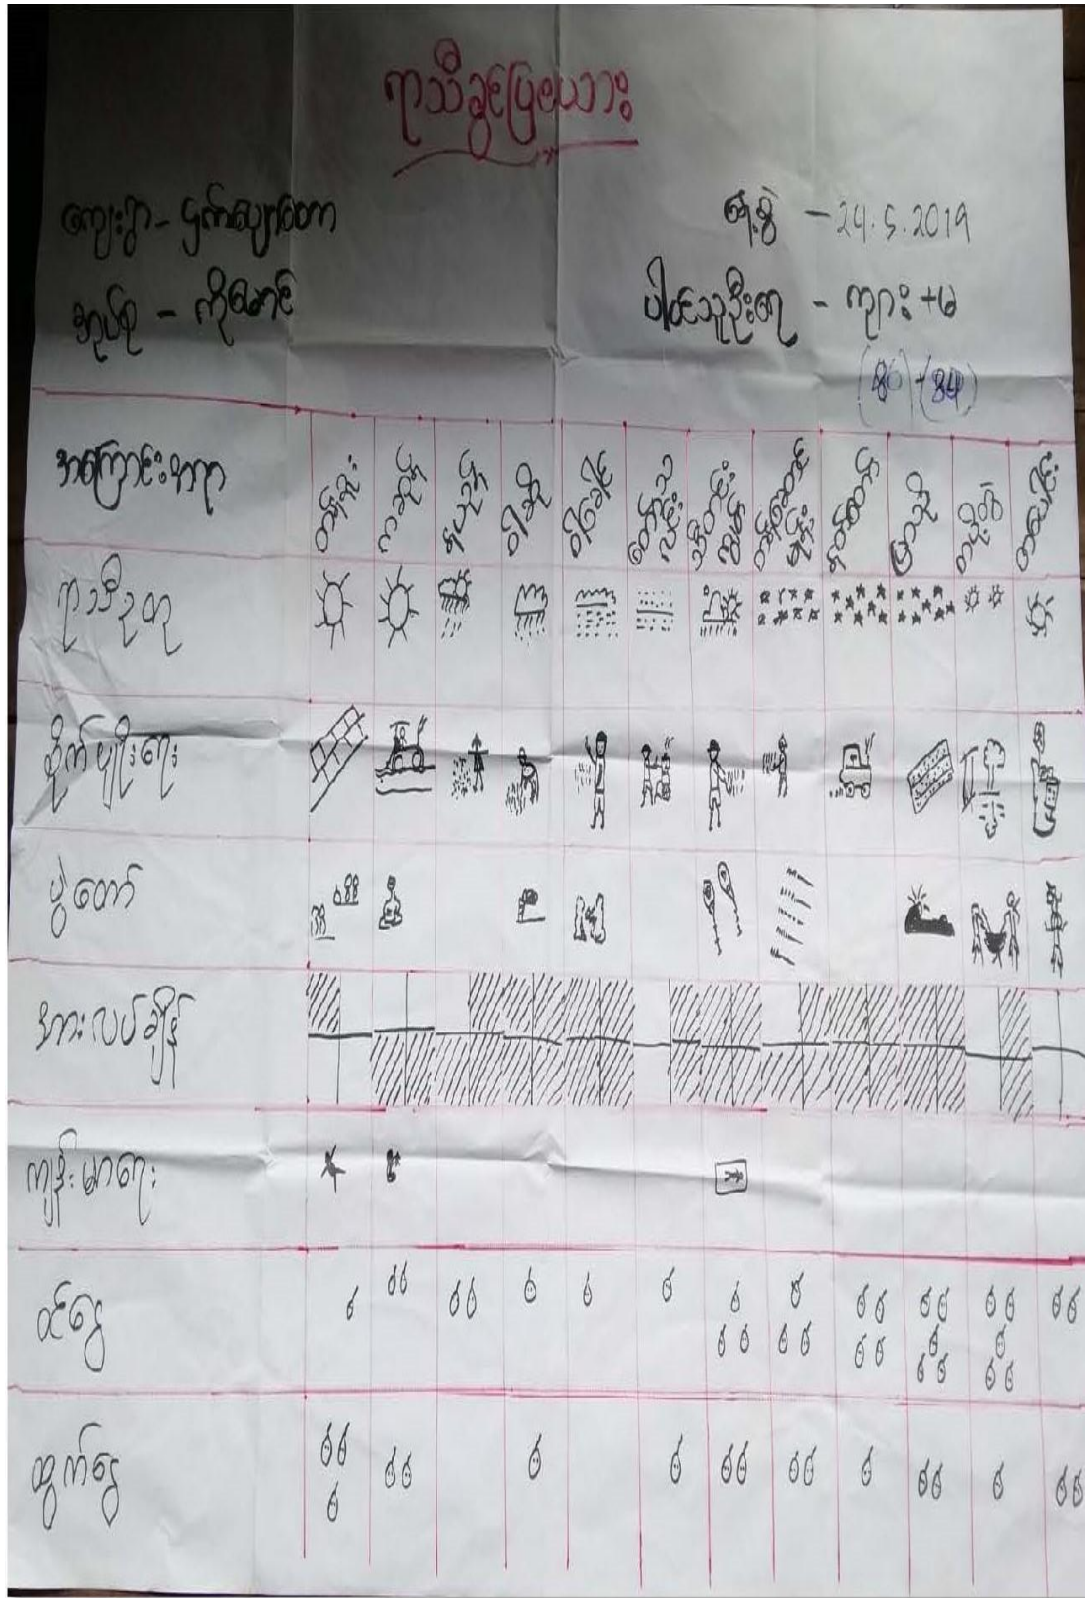 ရာသီခွင်ပြဇယား
ကျေးရွာ -
နေ့စွဲ - 24.5.2019
အုပ်စု - ကိုမောင်
ပါဝင်သူဦးရေ - ကျား + မ
အကြောင်းအရာ
တန်ခူး
ကဆုန်
နယုန်
ဝါဆို
ဝါခေါင်
တော်သလင်း
သီတင်းကျွတ်
တန်ဆောင်မုန်း
နတ်တော်
ပြာသို
တပို့တွဲ
တပေါင်း
ရာသီဥတု
စိုက်ပျိုးရေး
ပွဲတော်
အားလပ်ချိန်
ကျန်းမာရေး
ဝင်ငွေ
ထွက်ငွေ